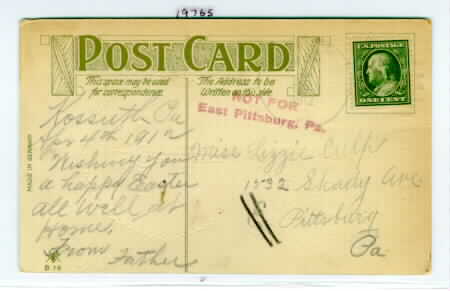 19765
POST CARD
This space may be used
for correspondence.
The Address to be
Written on this side
U.S. POSTAGE
ONE CENT
NOT FOR
East Pittsburg, Pa.
Kossuth Pa
Apr 4th 1912
Wishing you
a happy Easter
all well at
home,
From Father
Miss Lizzie Culp
1532 Shady Ave
Pittsburg
Pa
MADE IN GERMANY